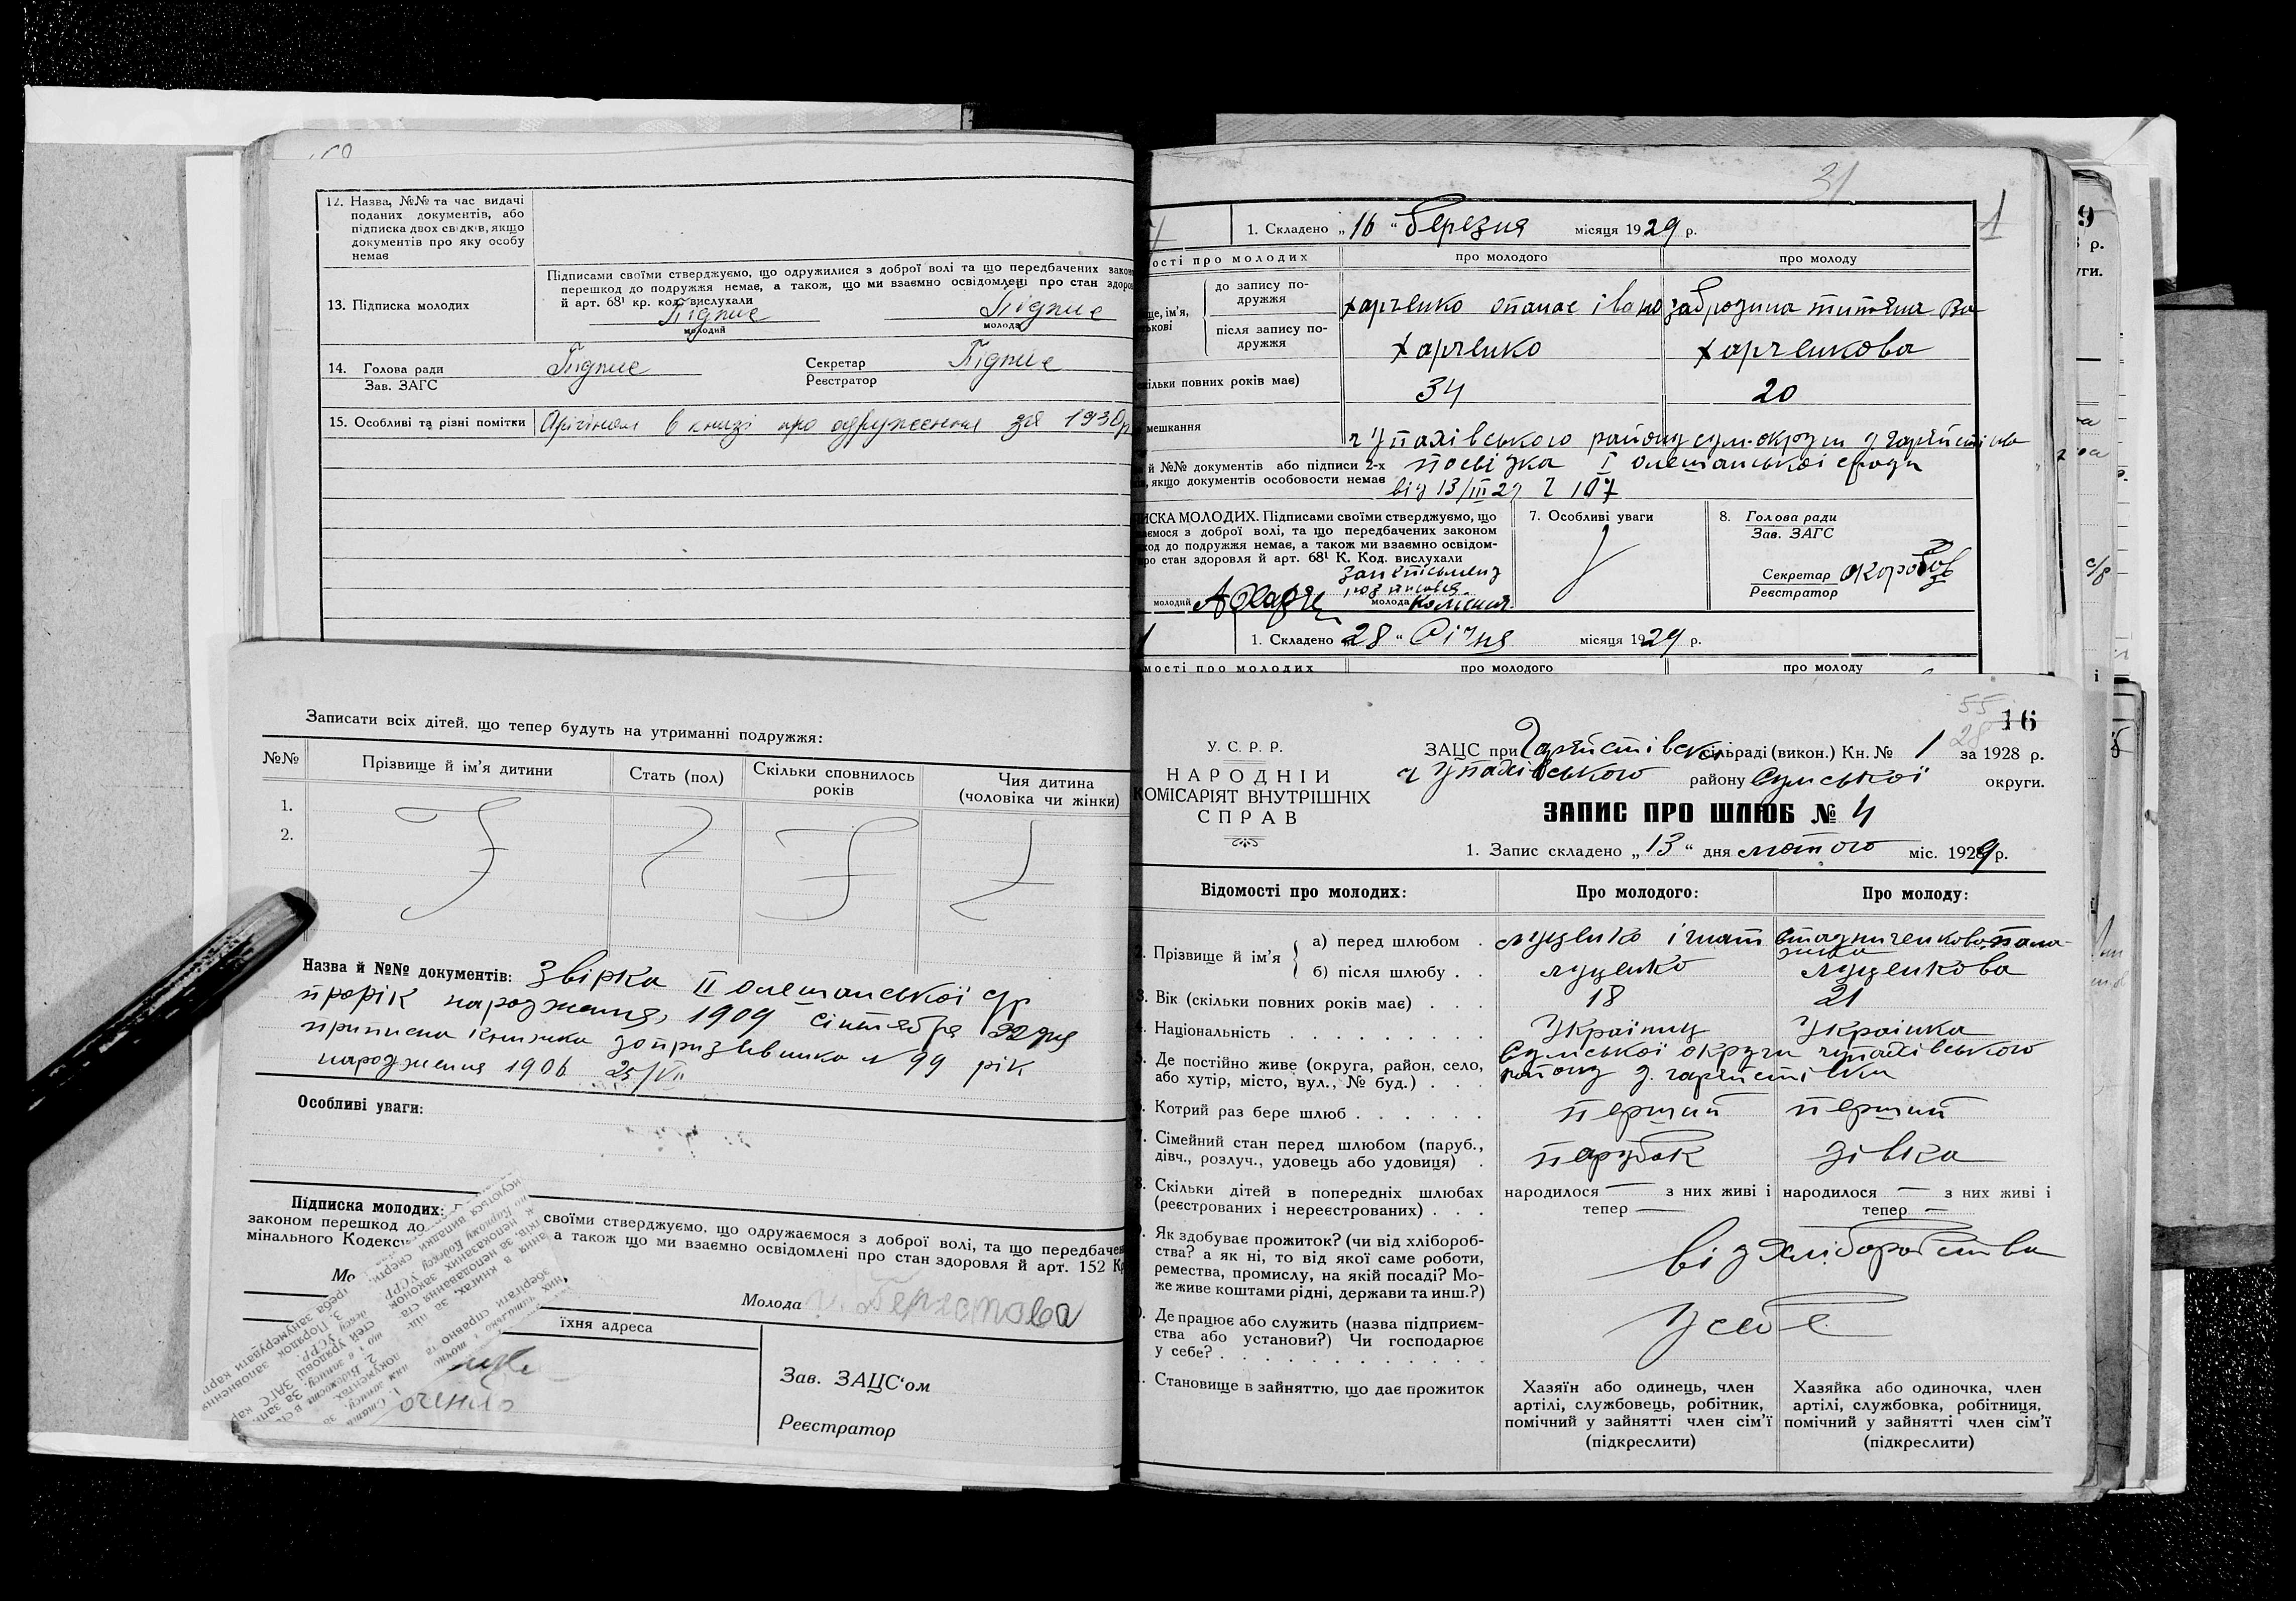 12. Назва, №№ та час видачі
поданих документів, або
підписка двох свідків, якщо
документів про яку особу
немає
13. Підписка молодих
Підписами своїми стверджуємо, що одружилися з доброї волі та що передбачених закон
перешкод до подружжя немає, а також, що ми взаємно освідомлені про стан здоров
й арт. 68¹ кр. код. вислухали
Підпис Підпис
молодий молода
14. Голова ради Підпис Секретар Підпис
Зав. ЗАГС Реєстратор
15. Особливі та різні помітки Орігінал в книзі про одруження за 1930р
Записати всіх дітей, що тепер будуть на утриманні подружжя:
№№ Прізвище й ім'я дитини Стать (пол) Скільки сповнилось років Чия дитина (чоловіка чи жінки)
1.
2.
Назва й №№ документів: Звірка II олешанської с/р
прорік народження 1909 сінтября 22 дня
приписна книжка допризивника N 99 рік
народження 1906 25/VII
Особливі уваги:
Підписка молодих:
своїми стверджуємо, що одружаємося з доброї волі, та що передбачен
законом перешкод до
а також що ми взаємно освідомлені про стан здоров'я й арт. 152 К
мінального Кодекс
Молода
їхня адреса
Зав. ЗАЦС'ом
Реєстратор
31
1
1. Складено „16“ Березня місяця 1929 р.
ості про молодих про молодого про молоду
до запису подружжя Харченко опанас івано забродина титяна Ва
ще, ім'я,
ькові
після запису подружжя Харченко Харченкова
кільки повних років має) 34 20
мешкання
Чупахівського району сум-округи д гарйстівка
й №№ документів або підписи 2-х посвідка I олешанської с ради
якщо документів особовости немає від 13/III 29 Ч 107
ИСКА МОЛОДИХ. Підписами своїми стверджуємо, що
аємося з доброї волі, та що передбачених законом
ход до подружжя немає, а також ми взаємно освідом-
ро стан здоровля й арт. 68¹ К. Код. вислухали
7. Особливі уваги
8. Голова ради
Зав. ЗАГС
Секретар
Реєстратор
молодий молода
1. Складено „28“ Січня місяця 1929 р.
мості про молодих про молодого про молоду
55
28
16
У. С. Р. Р.
НАРОДНІЙ
КОМІСАРІЯТ ВНУТРІШНІХ
СПРАВ
ЗАЦС при Гарйстівскі сільраді (викон.) Кн. № 1 за 1928 р.
Чупахівського району Сумської округи.
ЗАПИС ПРО ШЛЮБ № 4
1. Запис складено „13“ дня лютого міс. 1929 р.
Відомості про молодих: Про молодого: Про молоду:
Прізвище й ім'я
а) перед шлюбом . Луценко ігнат
б) після шлюбу . . Луценко Луценкова
Вік (скільки повних років має) . . . 18 21
Національність . . . . . . . . . Українец Українка
Де постійно живе (округа, район, село,
або хутір, місто, вул., № буд.) . . .
Сумської округи чупахівського
району д. гарйстівки
Котрий раз бере шлюб . . . . . . перший перший
Сімейний стан перед шлюбом (паруб.,
дівч., розлуч., удовець або удовиця) . парубок дівка
Скільки дітей в попередніх шлюбах
(реєстрованих і нереєстрованих) . . .
народилося — з них живі і тепер — народилося — з них живі і тепер —
Як здобуває прожиток? (чи від хлібороб-
ства? а як ні, то від якої саме роботи,
ремества, промислу, на якій посаді? Мо-
же живе коштами рідні, держави та инш.?)
від хліборобства
Де працює або служить (назва підприєм-
ства або установи?) Чи господарює
у себе? . . . . . . . . . . . .
У себе
Становище в зайняттю, що дає прожиток
Хазяїн або одинець, член
артілі, службовець, робітник,
помічний у зайнятті член сім'ї
(підкреслити)
Хазяйка або одиночка, член
артілі, службовка, робітниця,
помічний у зайнятті член сім'ї
(підкреслити)